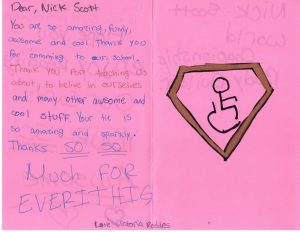 Dear, Nick Scott
You are so amazing, funny,
awesome and cool. Thank you
for comming to our school.
Thank you for teaching us
about, to belive in ourselves
and many other awesome and
cool stuff. Your tie is
so amazing and sparkly.
Thanks SO SO
Much FOR
EVERITHIS
Love Victoria